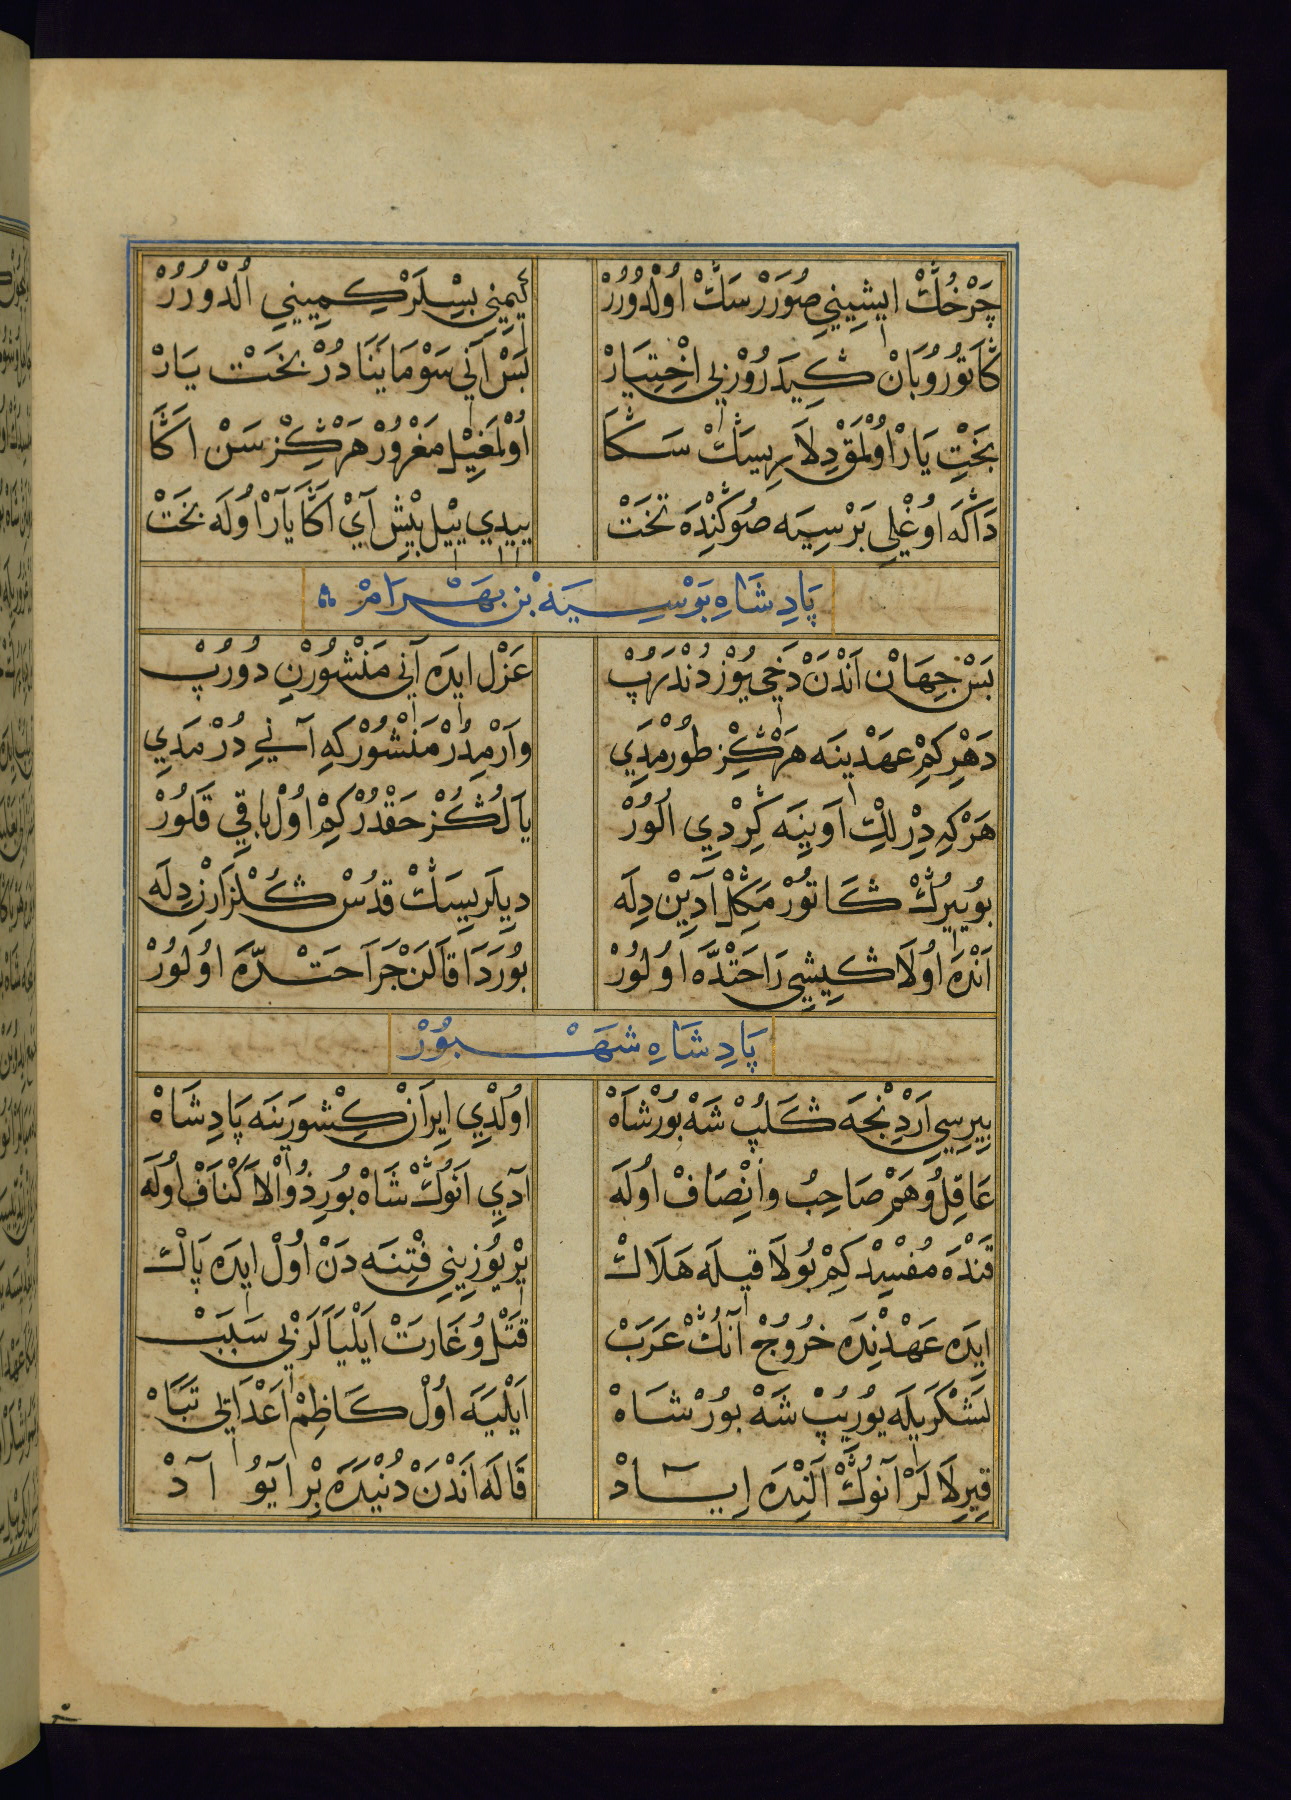 چَرْخُڭْ ايشِينِي صُوَرَرْسَڭْ اُولْدُورُرْ كِيمِنِي بِسْلَرْ كِمِينِي اُلْدُورُرْ
كَاتُورُوبَانْ كِيدَرُورْ بِي اخْتِيَارْ بَسْ آنِي سَوْمَايَنَادُرْ بَخَتْ يَارْ
بَخَتِ يَارْ اُولْمَقْ دِلَارِيسَڭْ سَكَا اُولْمَغِيلْ مَغْرُورْ هَرْكِزْ سَنْ اكَا
دَاكَه اُوغْلِي بَرْسِيَه صُوكِنْدَه تَخَتْ يِيدِي يِيلْ بِيشْ آيْ اَكَا يَارْ اُولَه بَخَتْ
پَادِشَاهِ بَوْسِيَه بْنِ بَهْرَامْ
بَسْ جِهَانْ اَنْدَنْ دَخِي يُوزْ دُنْدَرُپْ عَزْل ايدَه آنِي مَنْشُورْنِ دُورُپْ
دَهْرِ كِمْ عَهْدِينَه هَرْكِزْ طُورْمَدِي وَارْمِدُرْ مَنْشُورْ كِه آنِي دُرْمَدِي
هَرْ كِه دِرْلِڭْ اَوِينَه كِرْدِي اُلُورْ يَالُڭُزْ حَقْدُرْ كِمْ اُولْ بَاقِي قَلُورْ
بُو يِيرُڭْ كَاتُورْمَكِلْ آدِينْ دِلَه دِيلَرِيسَڭْ قُدُسْ كُلْزَارْنِ دِلَه
اَنْدَه اُولَا كِيشِي رَاحَتْدَه اُولُورْ بُورَدَا قَالَنْ جَرَاحَتْدَه اُولُورْ
پَادِشَاهِ شَهْبُورْ
بِيرِسِي اَرْدِنْجَه كَلُپْ شَهْ بُورْشَاهْ اُولْدِي اِيرَانْ كِشْوَرِينَه پَادِشَاهْ
عَاقِلُ وهَمْ صَاحِبُ وانْصَافْ اُولَه آدِي اَنُوڭْ شَاهْ بُورِ ذُوالْاَكْنَافْ اُولَه
قَنْدَه مُفْسِدْ كِمْ بُولَا قِيلَه هَلَاكْ يِرْ يُوزِينِي فِتْنَه دَنْ اُولْ ايدَه پَاكْ
ايدَه عَهْدِنْدَه خُرُوجْ اَنُڭْ عَرَبْ قَتْل وُ غَارَتْ اَيْلَيَالَرْ بِي سَبَبْ
لَشْكَرِيلَه يُورِيُپْ شَهْ بُورْ شَاهْ اَيْلَيَه اُولْ كَاظِمْ اَعْدَايِي تَبَاهْ
قِيرِلَا لَرْ اَنُوڭْ اَلِنْدَه اِيَادْ قَالَه اَنْدَنْ دُنْيَدَه بِرْ اَيُو آدْ